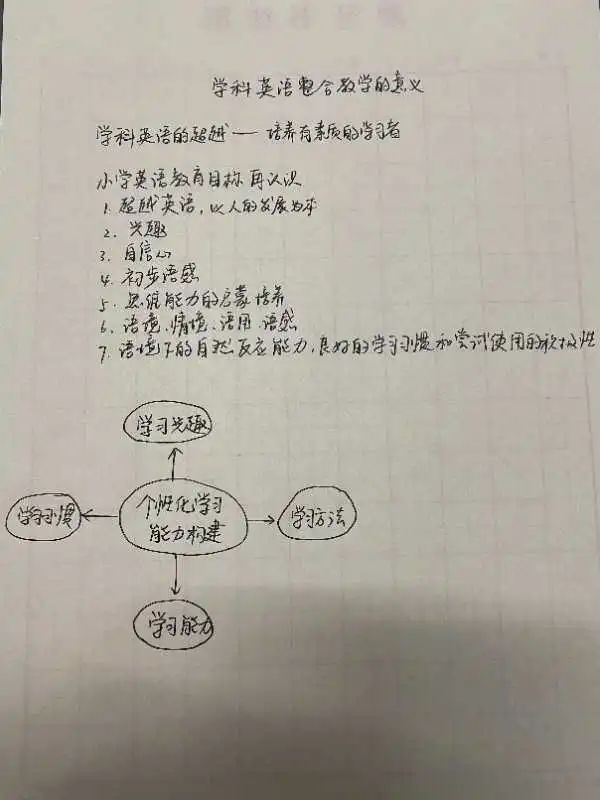 学科英语整合教学的意义
学科英语的超越——培养有素质的学习者
小学英语教育目标再认识
1. 超越英语,以人的发展为本
2. 兴趣
3. 自信心
4. 初步语感
5. 思维能力的启蒙培养
6. 语境、情境、语用、语感
7. 语境下的自然反应能力,良好的学习习惯和尝试使用的积极性
学习兴趣
学习习惯
个性化学习
能力构建
学习方法
学习能力